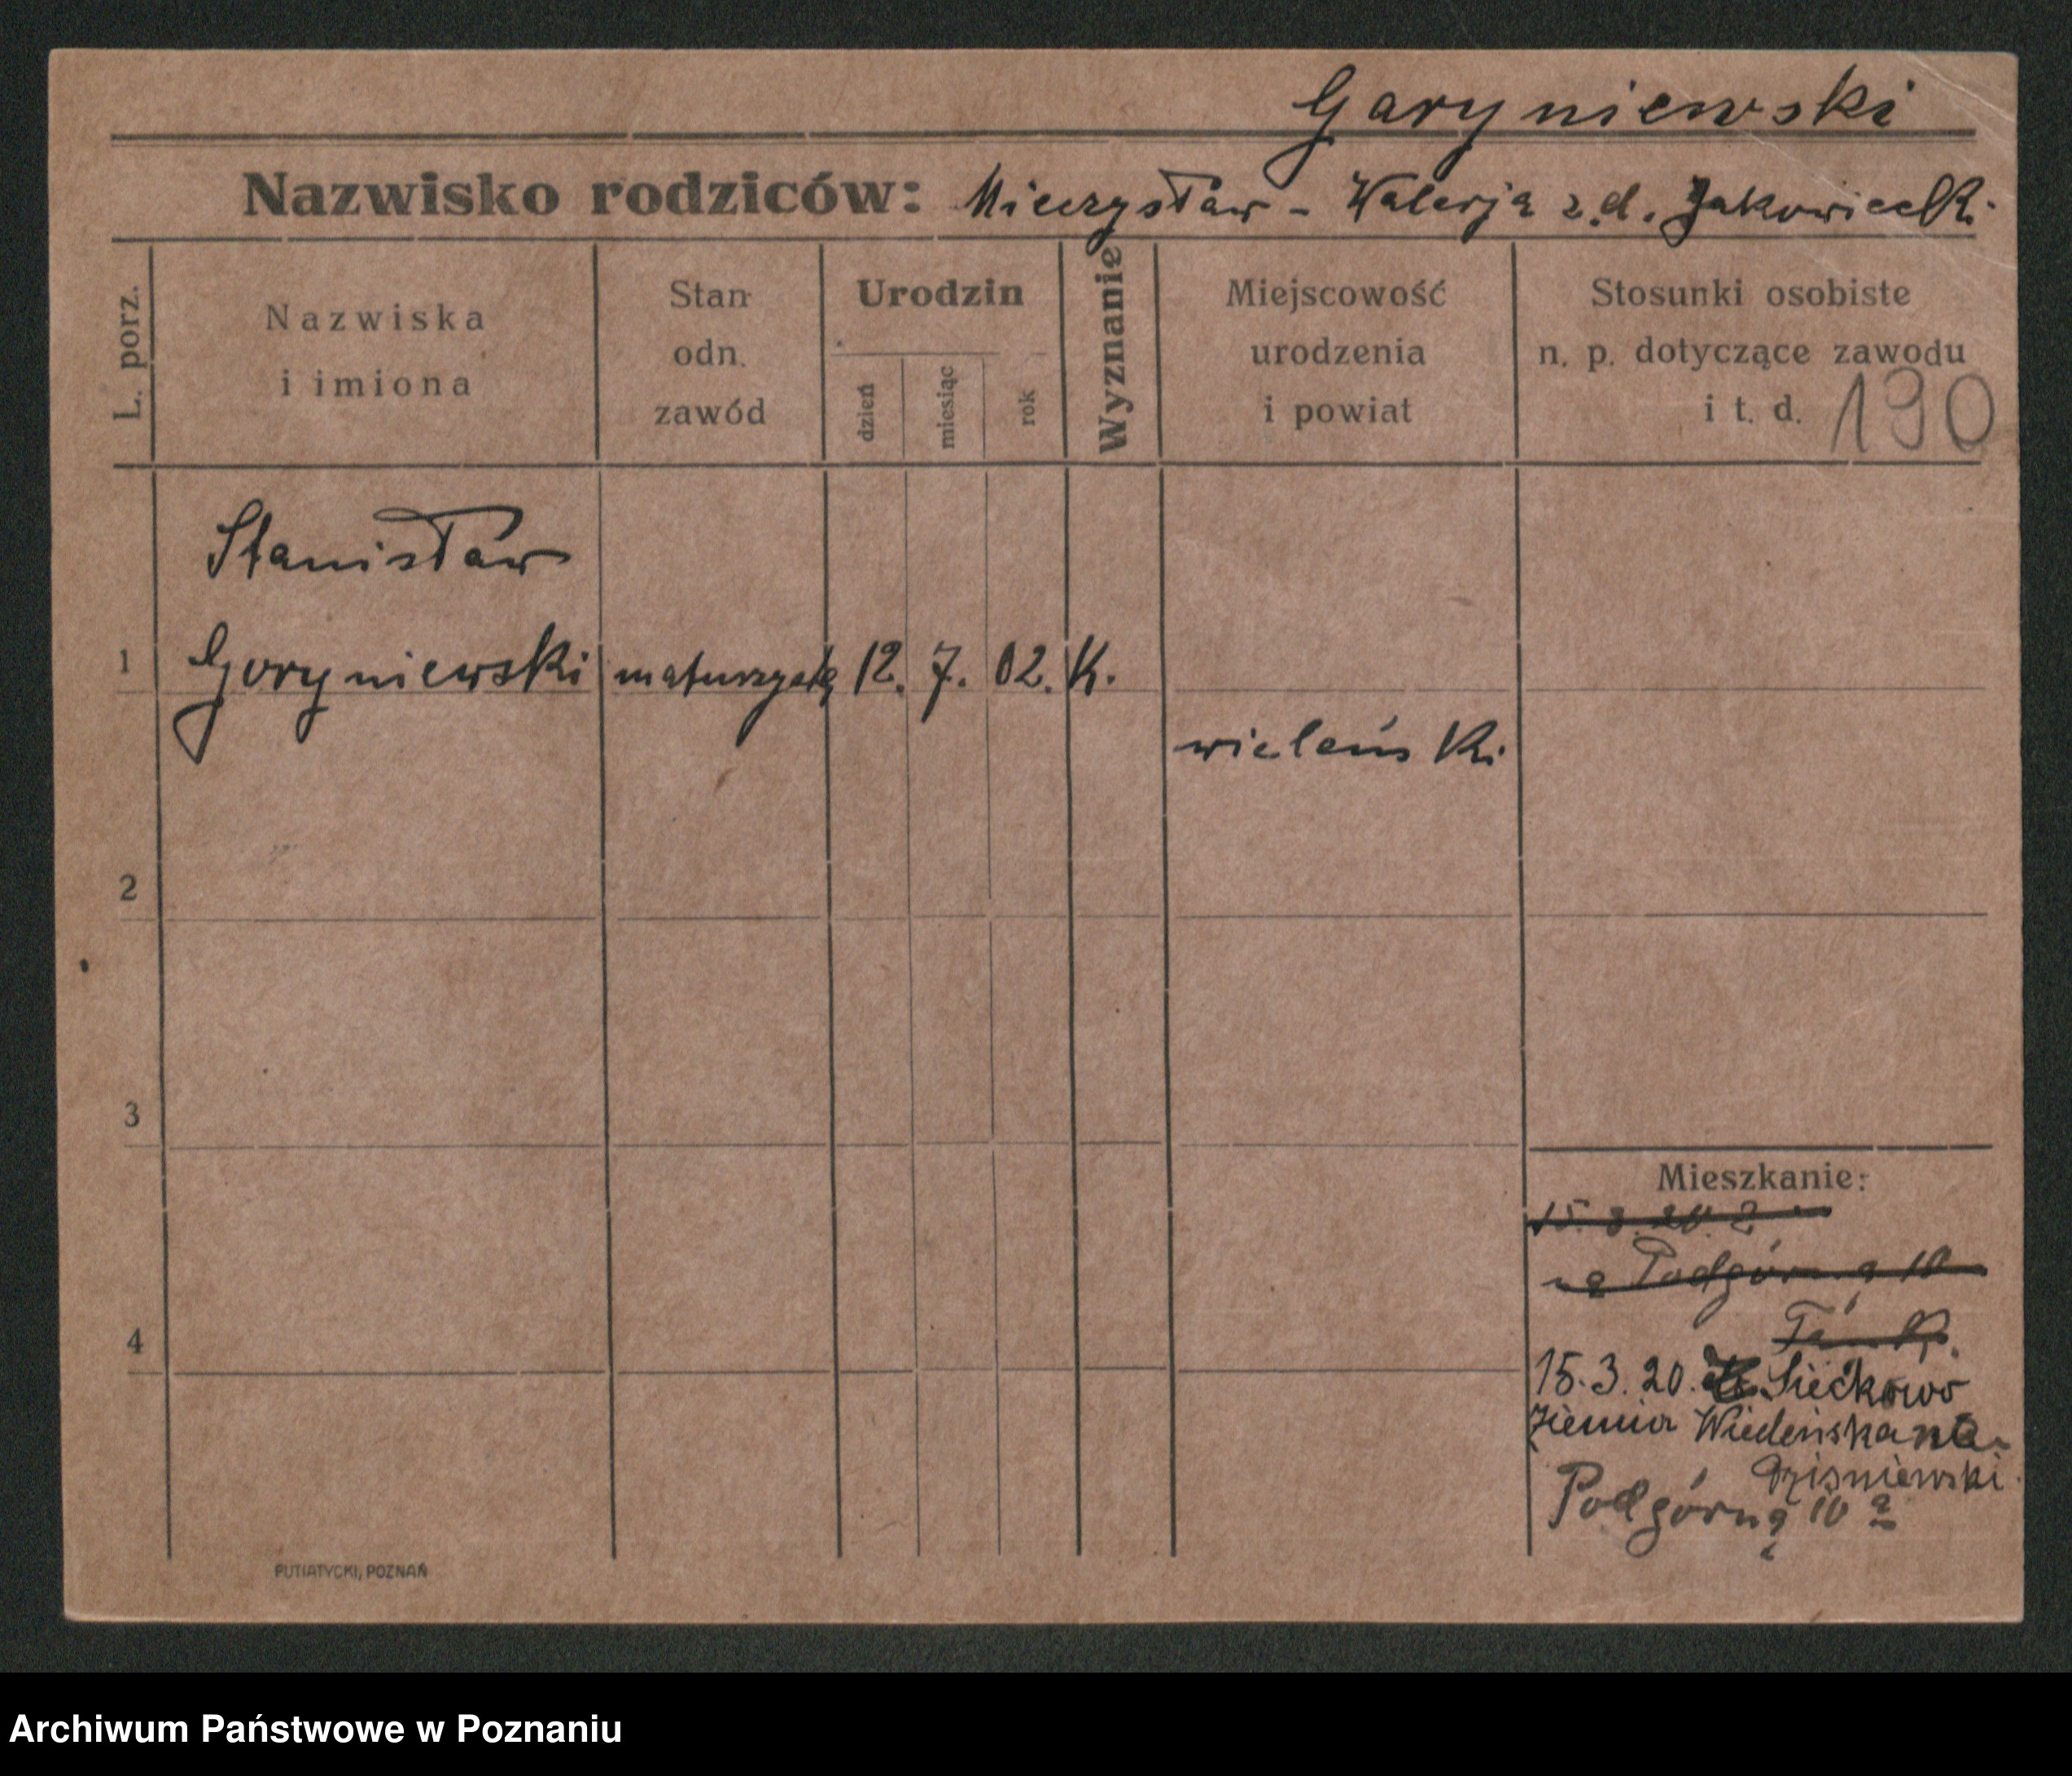 Garyniewski
Nazwisko rodziców: Mieczysław - Walerja z d. Jakowicki.
L. porz.
Nazwiska
i imiona
Stan
odn.
zawód
Urodzin
dzień
miesiąc
rok
Wyznanie
Miejscowość
urodzenia
i powiat
Stosunki osobiste
n. p. dotyczące zawodu
i t. d. 190
Stanisław
1 Goryniewski maturzysta 12. 7. 02. K.
wieleński
2
3
Mieszkanie:
15.3.20. z
na Podgórną 10
4
15.3.20. Sieckowo
Ziemia Wiedeńska na
Dziśniewski
Podgórną 10 a
PUTIATYCKI, POZNAŃ
Archiwum Państwowe w Poznaniu